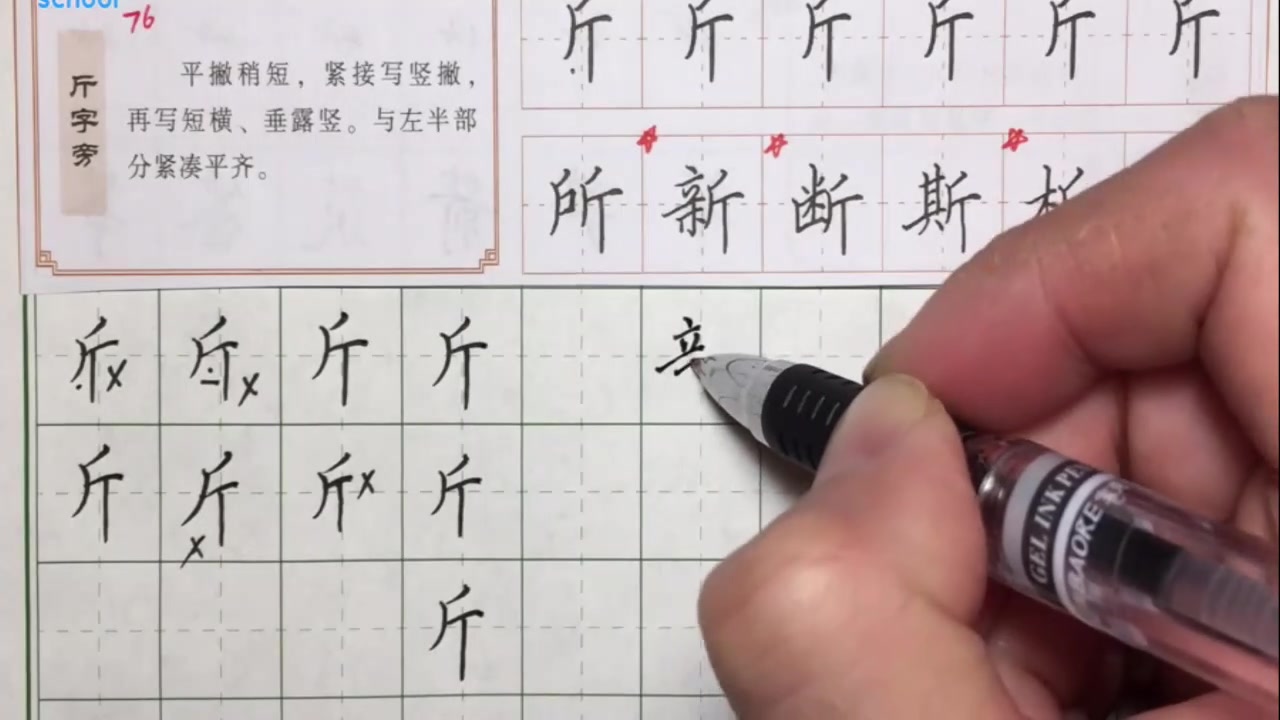 school
76
斤字旁
平撇稍短，紧接写竖撇，
再写短横、垂露竖。与左半部
分紧凑平齐。
斤 斤 斤 斤 斤 斤
所 新 断 斯 析
斤 x 斤 x 斤 斤
斤 斤 x 斤 x 斤
斤
GEL INK PEN
BAOKE